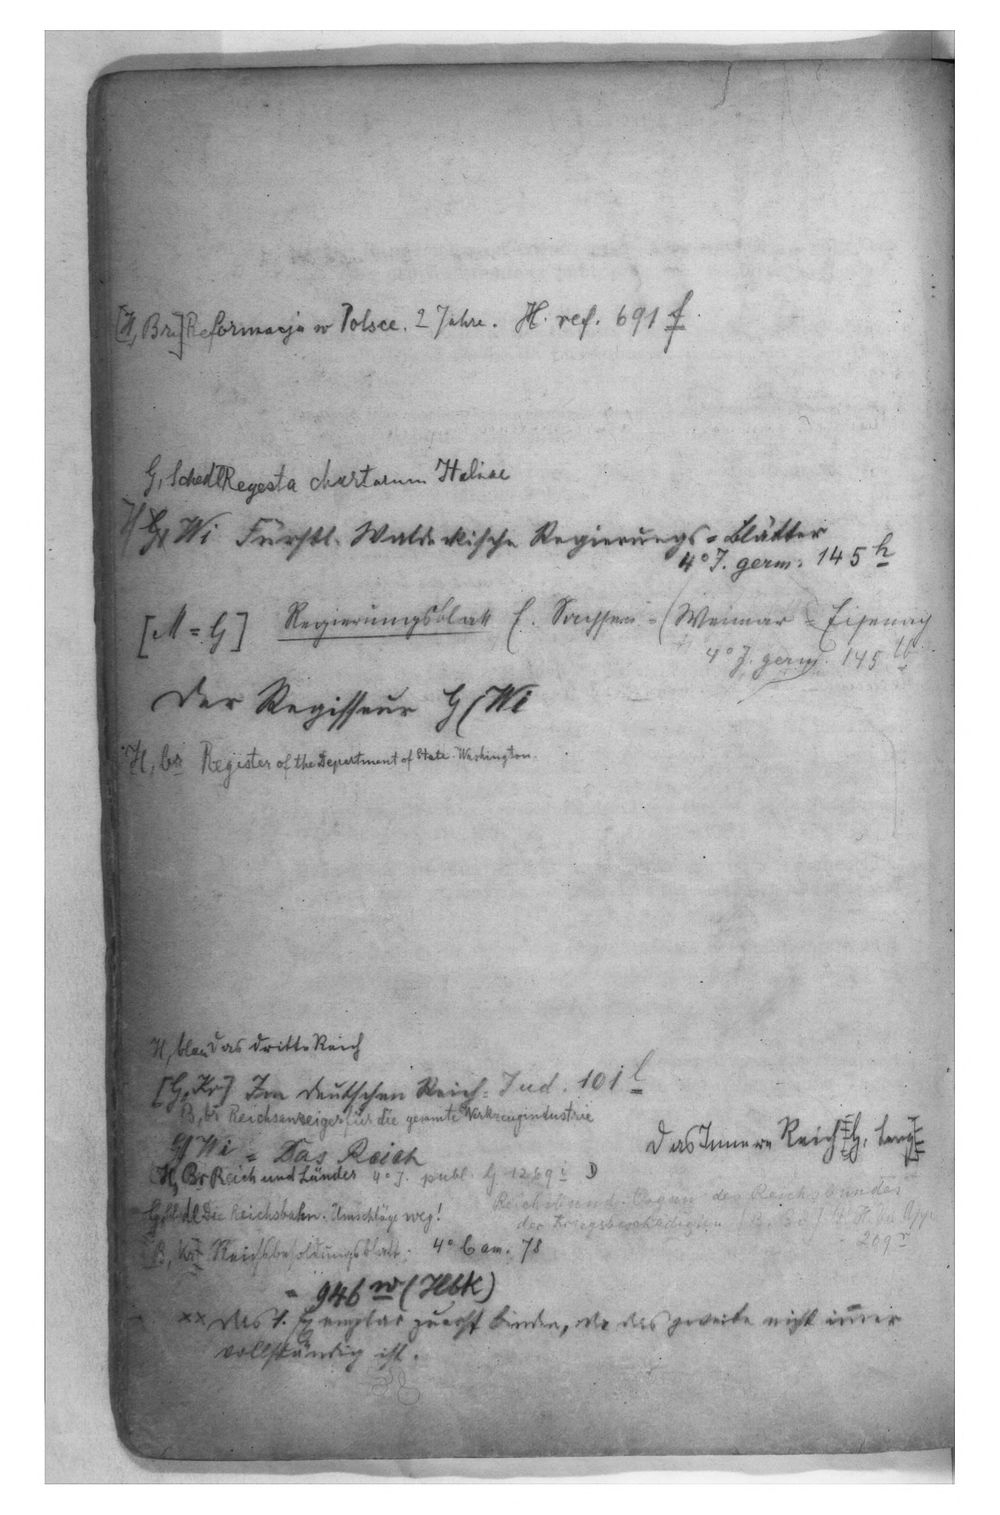 [H, Br] Reformacja w Polsce. 2 Jahre. H. ref. 691 f
G, Schedl Regesta chartarum Italiae
G, Wi Fürstl. Waldeckische Regierungs = Blätter
4° J. germ. 145 h
[M = G] Regierungsblatt f. Sachsen = (Weimar = Eisenach
4° J. germ. 145
Der Regisseur G (Wi
H, br Register of the Department of State. Washington.
H, blau Das dritte Reich
[G, Kr] Im deutschen Reich = Jud. 101 l
B, br Reichsanzeiger für die gesamte Werkzeugindustrie
Das Innere Reich G,
G Wi = Das Reich
H, Br Reich und Länder 4° J. publ. G. 1269 i
Reichsbund. Organ des Reichsbundes
Die Reichsbahn. Umschläge weg!
der Kriegsbeschädigten
269
B, Reichsbesoldungsblatt. 4° Cam. 78
= 946 w (Hbk)
xx das 1. Exemplar zuerst binden, da das zweite nicht immer
vollständig ist.